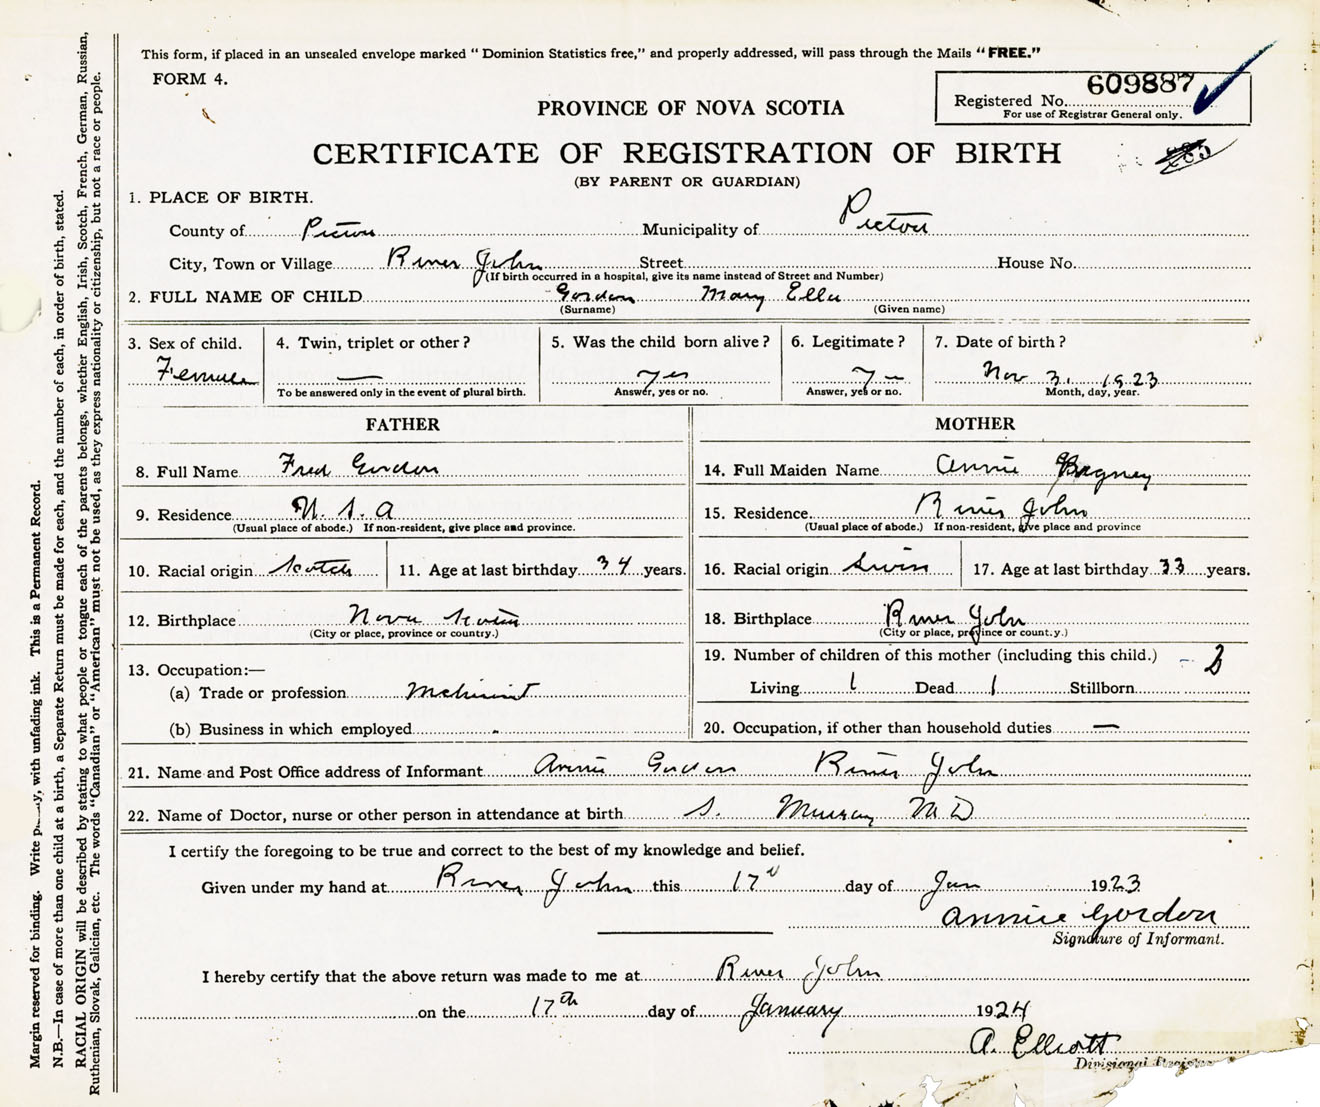 This form, if placed in an unsealed envelope marked "Dominion Statistics free," and properly addressed, will pass through the Mails "FREE."
FORM 4.
609887
Registered No.
For use of Registrar General only.
PROVINCE OF NOVA SCOTIA
CERTIFICATE OF REGISTRATION OF BIRTH
(BY PARENT OR GUARDIAN)
1. PLACE OF BIRTH.
County of Pictou Municipality of Pictou
City, Town or Village River John Street House No.
(If birth occurred in a hospital, give its name instead of Street and Number)
2. FULL NAME OF CHILD Gordon Mary Ella
(Surname) (Given name)
3. Sex of child. 4. Twin, triplet or other? 5. Was the child born alive? 6. Legitimate? 7. Date of birth?
Female — yes yes Nov 3. 1923
To be answered only in the event of plural birth. Answer, yes or no. Answer, yes or no. Month, day, year.
FATHER MOTHER
8. Full Name Fred Gordon 14. Full Maiden Name Annie
9. Residence U. S. A 15. Residence River John
(Usual place of abode.) If non-resident, give place and province. (Usual place of abode.) If non-resident, give place and province
10. Racial origin Scotch 11. Age at last birthday 34 years. 16. Racial origin Swiss 17. Age at last birthday 33 years.
12. Birthplace Nova Scotia 18. Birthplace River John
(City or place, province or country.) (City or place, province or country.)
13. Occupation:— 19. Number of children of this mother (including this child.) 2
(a) Trade or profession Machinist Living 1 Dead 1 Stillborn
(b) Business in which employed 20. Occupation, if other than household duties —
21. Name and Post Office address of Informant Annie Gordon River John
22. Name of Doctor, nurse or other person in attendance at birth S. Murray M D
I certify the foregoing to be true and correct to the best of my knowledge and belief.
Given under my hand at River John this 17th day of Jan 1923
Annie Gordon
Signature of Informant.
I hereby certify that the above return was made to me at River John
on the 17th day of January 1924
A. Elliott
Divisional Registrar
Margin reserved for binding. Write with unfading ink. This is a Permanent Record.
N.B.—In case of more than one child at a birth, a Separate Return must be made for each, and the number of each, in order of birth, stated.
RACIAL ORIGIN will be described by stating to what people or tongue each of the parents belongs, whether English, Irish, Scotch, French, German, Russian,
Ruthenian, Slovak, Galician, etc. The words "Canadian" or "American" must not be used, as they express nationality or citizenship, but not a race or people.